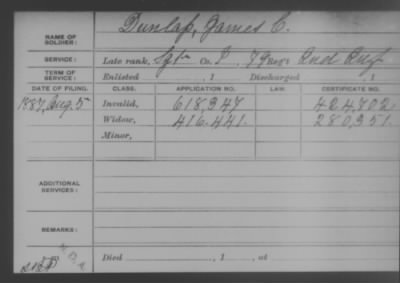 NAME OF SOLDIER: Dunlap, James C.
SERVICE: Late rank, Sgt Co. I, 79 Reg't Ind Inf
TERM OF SERVICE: Enlisted , 1 Discharged , 1
DATE OF FILING. CLASS. APPLICATION NO. LAW. CERTIFICATE NO.
1887, Aug. 5 Invalid, 618.347 424.702
Widow, 416.441. 280,351.
Minor,
ADDITIONAL SERVICES:
REMARKS:
Died , 1 , at